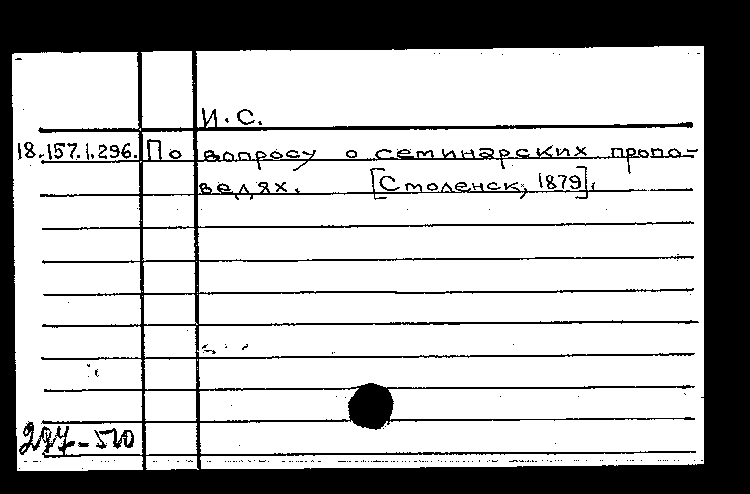 И. С.
18.157.1.296. По вопросу о семинарских пропо-
ведях. [Смоленск, 1879].